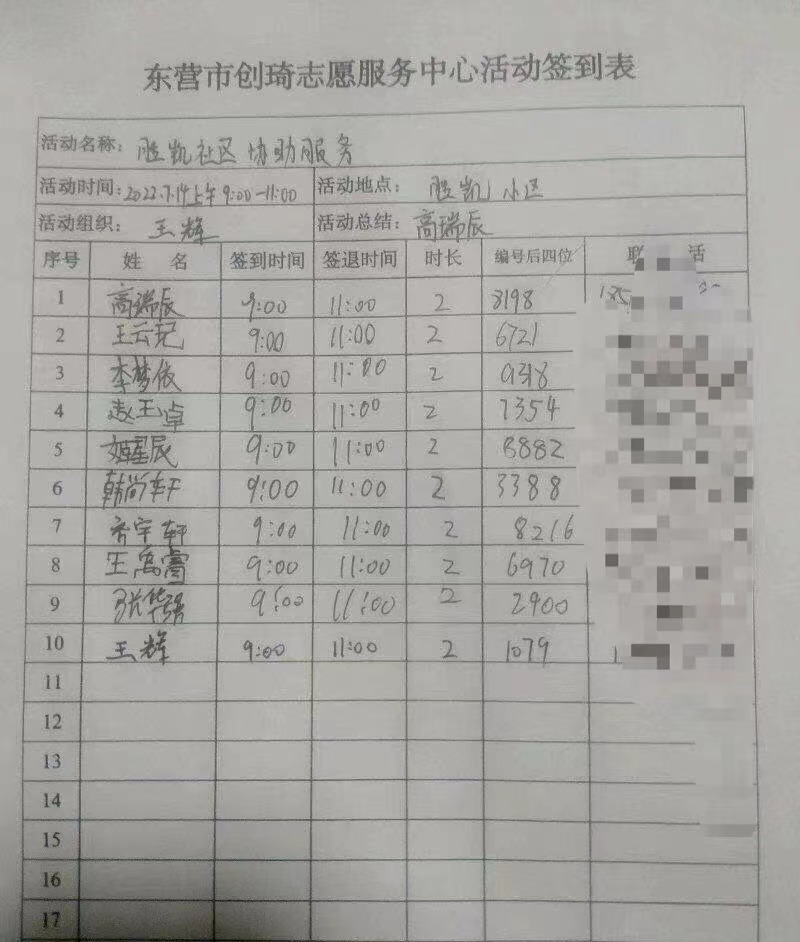 东营市创琦志愿服务中心活动签到表
活动名称: 胜凯社区协助服务
活动时间: 2022.7.14上午9:00-11:00 活动地点: 胜凯小区
活动组织: 王辉 活动总结: 高瑞辰
序号 姓名 签到时间 签退时间 时长 编号后四位 联 话
1 高瑞辰 9:00 11:00 2 3198
2 王云 9:00 11:00 2 6721
3 李梦依 9:00 11:00 2 9318
4 赵王卓 9:00 11:00 2 7354
5 星辰 9:00 11:00 2 8882
6 韩尚轩 9:00 11:00 2 3388
7 齐宇轩 9:00 11:00 2 8216
8 王禹睿 9:00 11:00 2 6970
9 张华强 9:00 11:00 2 2900
10 王辉 9:00 11:00 2 1079
11
12
13
14
15
16
17